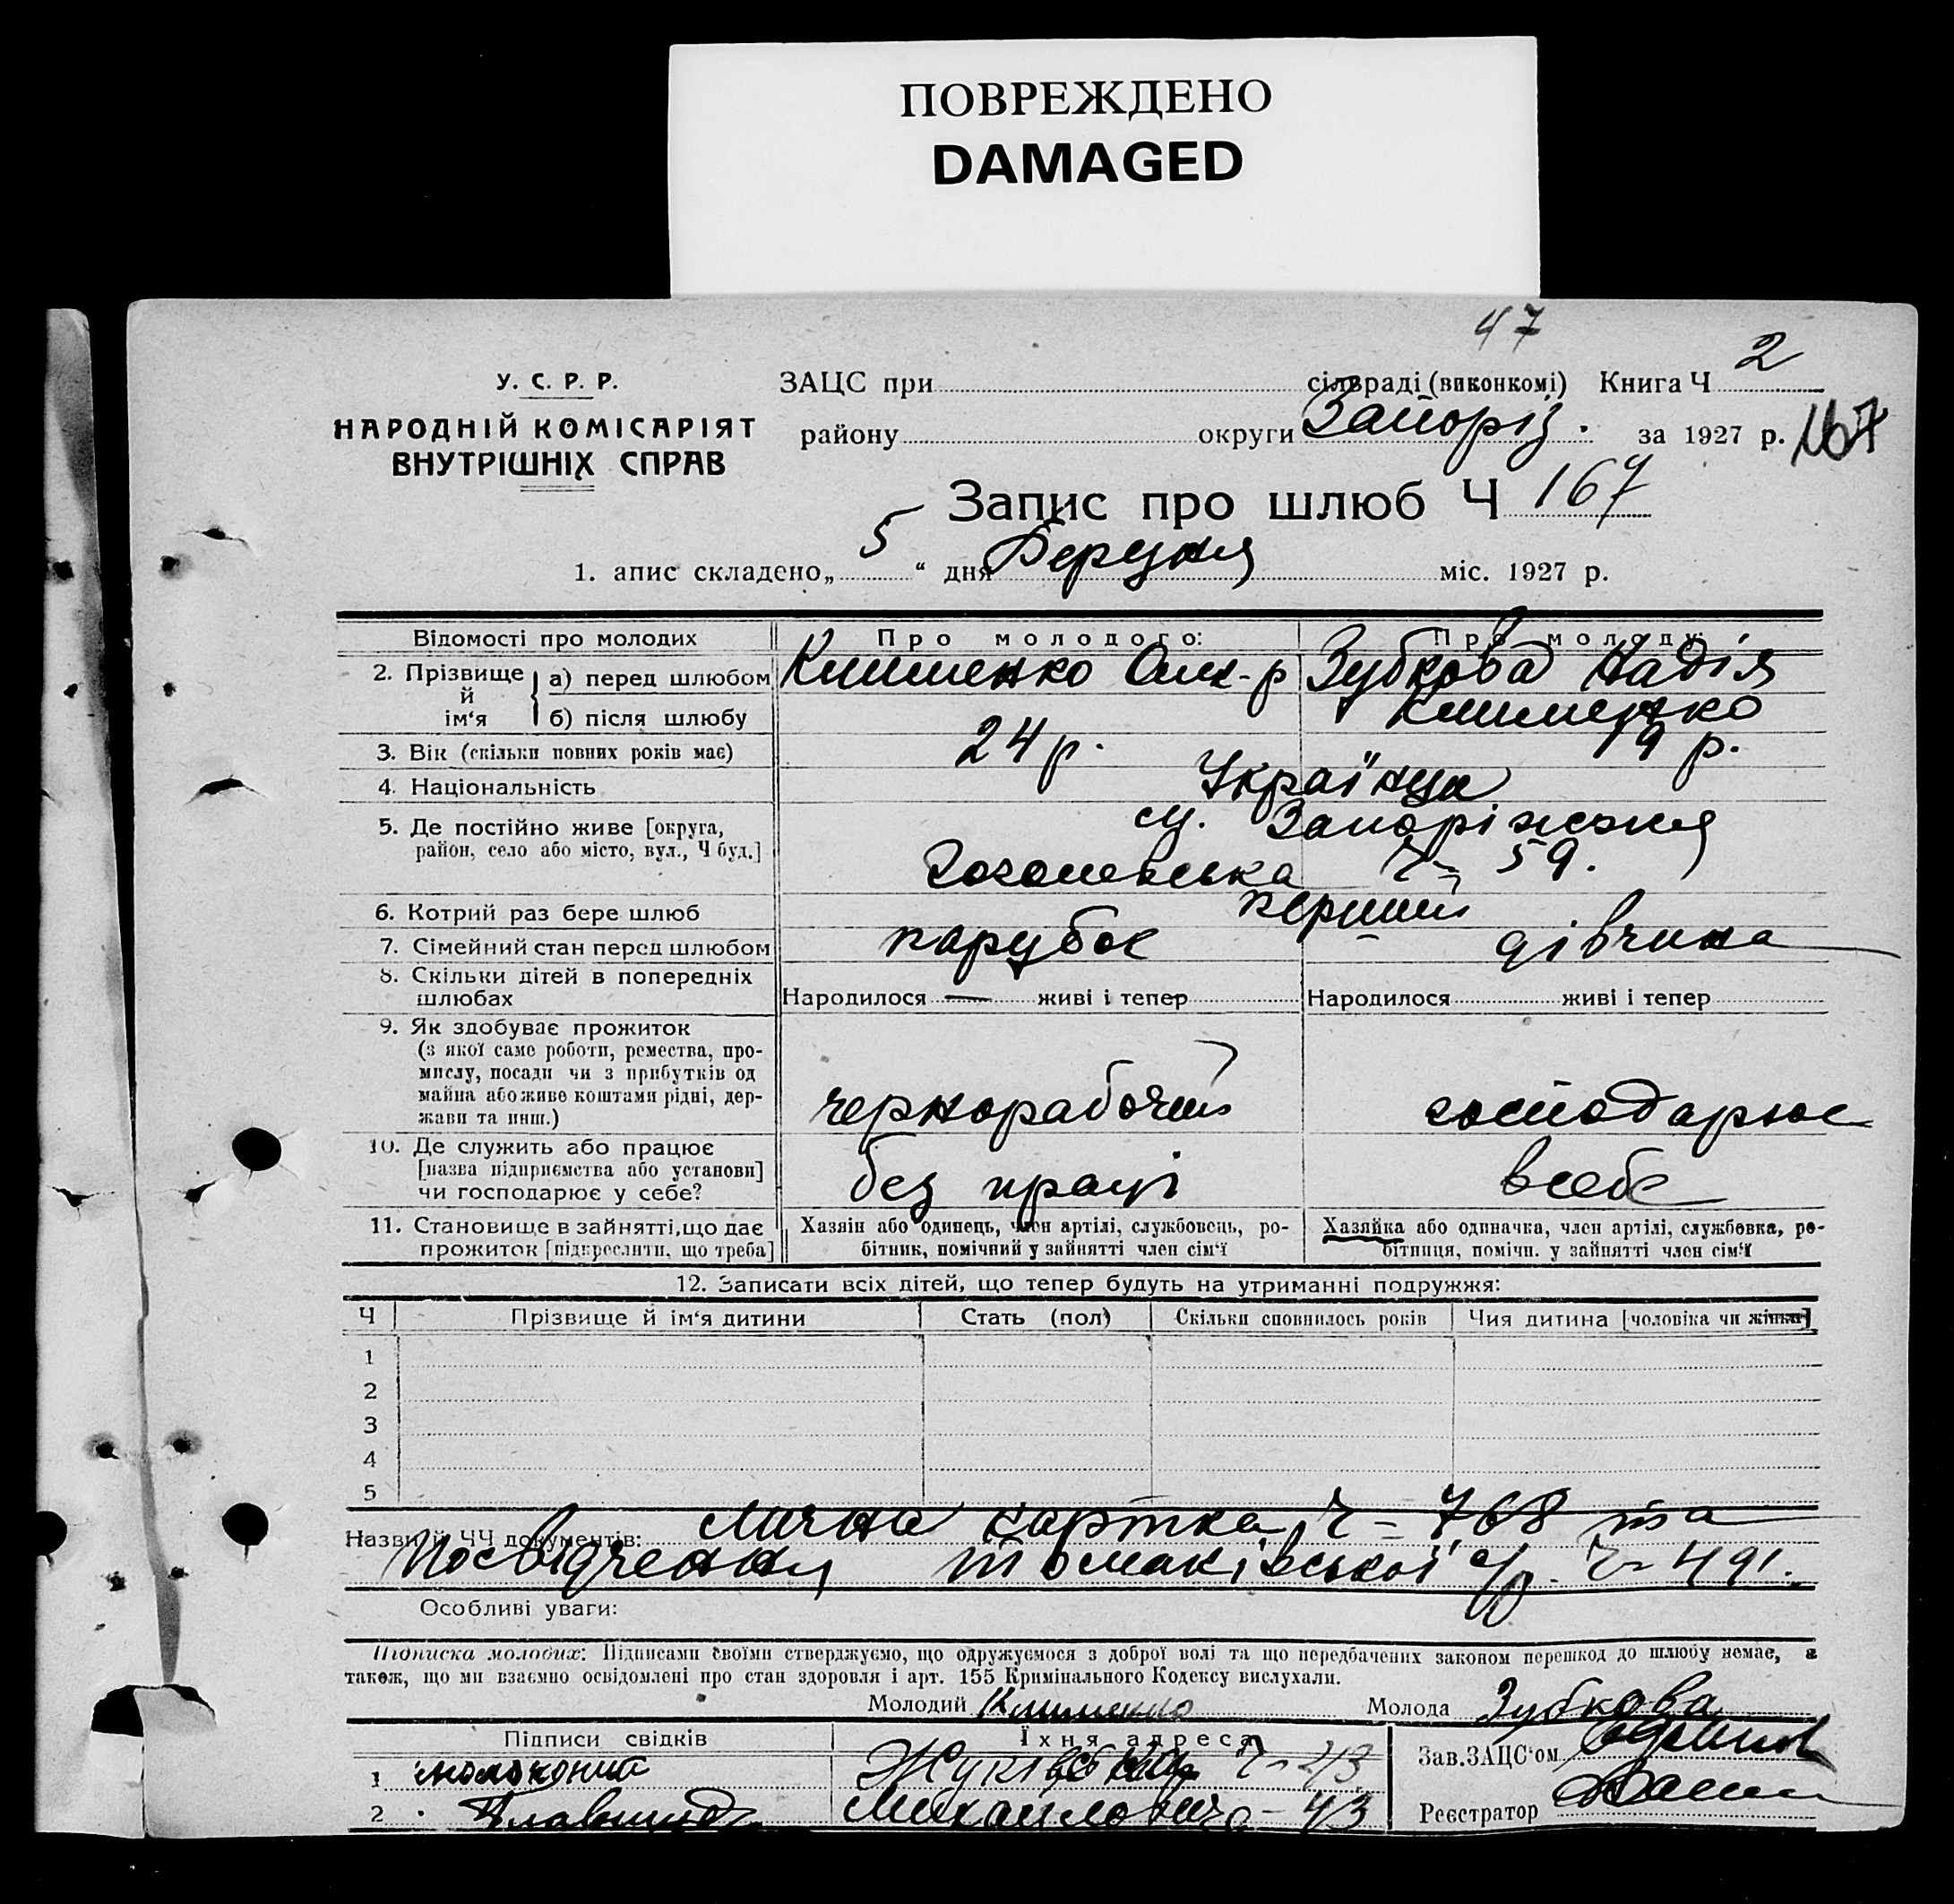 ПОВРЕЖДЕНО
DAMAGED
47
У. С. Р. Р.
НАРОДНІЙ КОМІСАРІЯТ
ВНУТРІШНІХ СПРАВ
ЗАЦС при сільраді (виконкомі) Книга Ч 2
району округи Запоріз. за 1927 р. 167
Запис про шлюб Ч 167
1. апис складено „ 5 “ дня Березня міс. 1927 р.
Відомості про молодих Про молодого: Про молоду:
2. Прізвище й ім‘я а) перед шлюбом Клименко Олек-р Зубкова Надія
б) після шлюбу Клименко
3. Вік (скільки повних років має) 24 р. 19 р.
4. Національність Українця
5. Де постійно живе [округа, м. Запоріжжя
район, село або місто, вул., Ч буд.] Гоголевська Ч- 59.
6. Котрий раз бере шлюб перший
7. Сімейний стан перед шлюбом парубок дівчина
8. Скільки дітей в попередніх
шлюбах Народилося — живі і тепер Народилося живі і тепер
9. Як здобуває прожиток
(з якої саме роботи, ремества, про-
мислу, посади чи з прибутків од
майна або живе коштами рідні, дер-
жави та инш.) чернорабочий господарює
10. Де служить або працює
[назва підприємства або установи]
чи господарює у себе? без праці всебе
11. Становище в зайнятті, що дає
прожиток [підкреслити, що треба]
Хазяїн або одинець, член артілі, службовець, ро-
бітник, помічний у зайнятті член сім‘ї
Хазяйка або одиначка, член артілі, службовка, ро-
бітниця, помічн. у зайнятті член сім‘ї
12. Записати всіх дітей, що тепер будуть на утриманні подружжя:
Ч Прізвище й ім‘я дитини Стать (пол) Скільки сповнилось років Чия дитина [чоловіка чи жінки]
1
2
3
4
5
Назви й ЧЧ документів: Лична картка Ч- 768 та
Посвідчення Томаківської с/р. Ч- 491.
Особливі уваги:
Підписка молодих: Підписами своїми стверджуємо, що одружуємося з доброї волі та що передбачених законом перешкод до шлюбу немає, а
також, що ми взаємно освідомлені про стан здоровля і арт. 155 Кримінального Кодексу вислухали.
Молодий Клименко Молода Зубкова
Підписи свідків Їхня адреса
1 Жуківська Ч- 23
2 43
Зав. ЗАЦС‘ом
Реєстратор